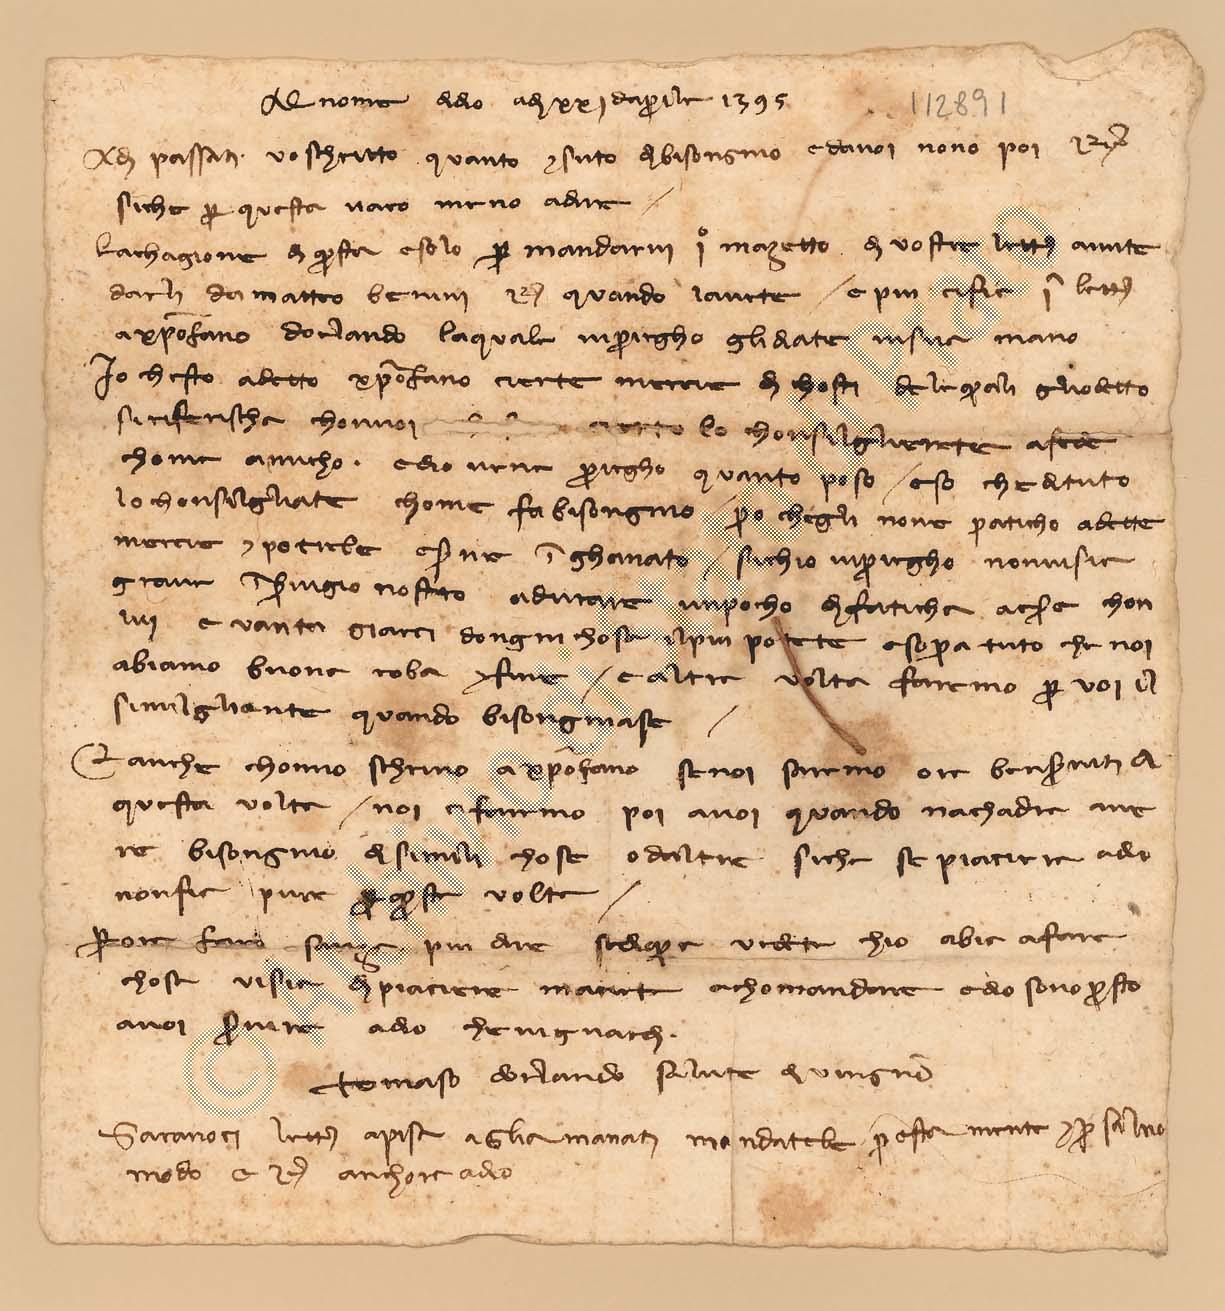 Al nome di dio adi xxi daprile 1395
112891
A di passati voschritto quanto suto di bisongnio e da voi nono poi
siche per questa varo meno a dire /
La chagione di questa e solo per mandarvi i mazetto di vostre lettere avute
darli da matteo benini quando lavete / e piu cifie i lettera
a xpofano dorlando la quale vi priegho gli diate in sua mano
Io chesto a detto xpofano cierte mercie di chosti gliodetto
si riferischa chonvoi lo chonsilglierete a fede
chome amicho. edio vene priegho quanto poso / eso che di tuto
lo chonsilgliate chome fa bisongnio / pero chegli none praticho a dette
mercie e potrebe eserne inghanato / sichio vi priegho non vi sia
grave durare unpocho di faticha a esere chon
lui e vantagiarci dongni chosa il piu potete e sopra tuto che noi
abiamo buona roba / e altra volta faremo per voi il
similgliante quando bisongniase /
E anche chomio schrivo a xpofano se noi saremo ora ben serviti di
questa volta / noi ci faremo poi a voi quando nachadra ave
re bisongnio di simili chose o daltre siche se piaciere a dio
non fie pure per questa volta /
Per ora faro sanza piu dire se di qua vedete chio abia a fare
chosa vi sia di piaciere mavete a chomandare edio sono presto
a voi servire a dio che vi guardi.
Tomaso dorlando salute di vingnone
Saranoci lettere a pisa a Gharmanati mandatele prestamente e per salvo
modo e anchora a dio